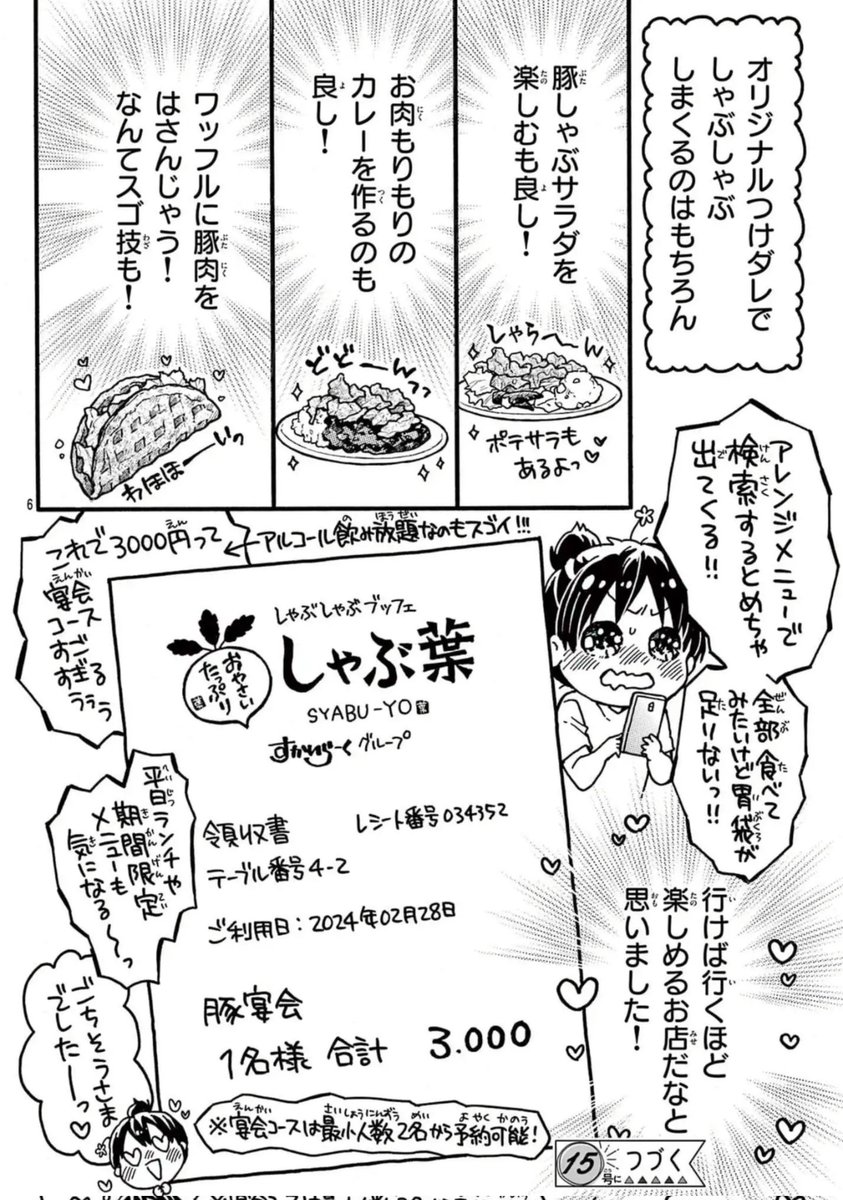 オリジナルつけダレで
しゃぶしゃぶ
しまくるのはもちろん
豚しゃぶサラダを
楽しむも良し！
しゃらへ〜ん
ポテサラも
あるよっ
お肉もりもりの
カレーを作るのも
良し！
どどーんっっ
ワッフルに豚肉を
はさんじゃう！
なんてスゴ技も！
わほほーいっ
6
アレンジメニューで
検索するとめちゃ
出てくる!!
全部食べて
みたいけど胃袋が
足りないっ!!
アルコール飲み放題なのもスゴイ!!!
これで3000円って
宴会
コース
すごる
すぎる
ううう
しゃぶしゃぶブッフェ
しゃぶ葉
おやさい
たっぷり
SYABU-YO
すかいらーくグループ
領収書
レシート番号034352
テーブル番号4-2
ご利用日：2024年02月28日
豚宴会
1名様 合計 3.000
※宴会コースは最小人数2名から予約可能！
平日ランチや
期間限定
メニューも
気になる〜っ
ごちそうさま
でしたーっ
行けば行くほど
楽しめるお店だなと
思いました！
15号につづく